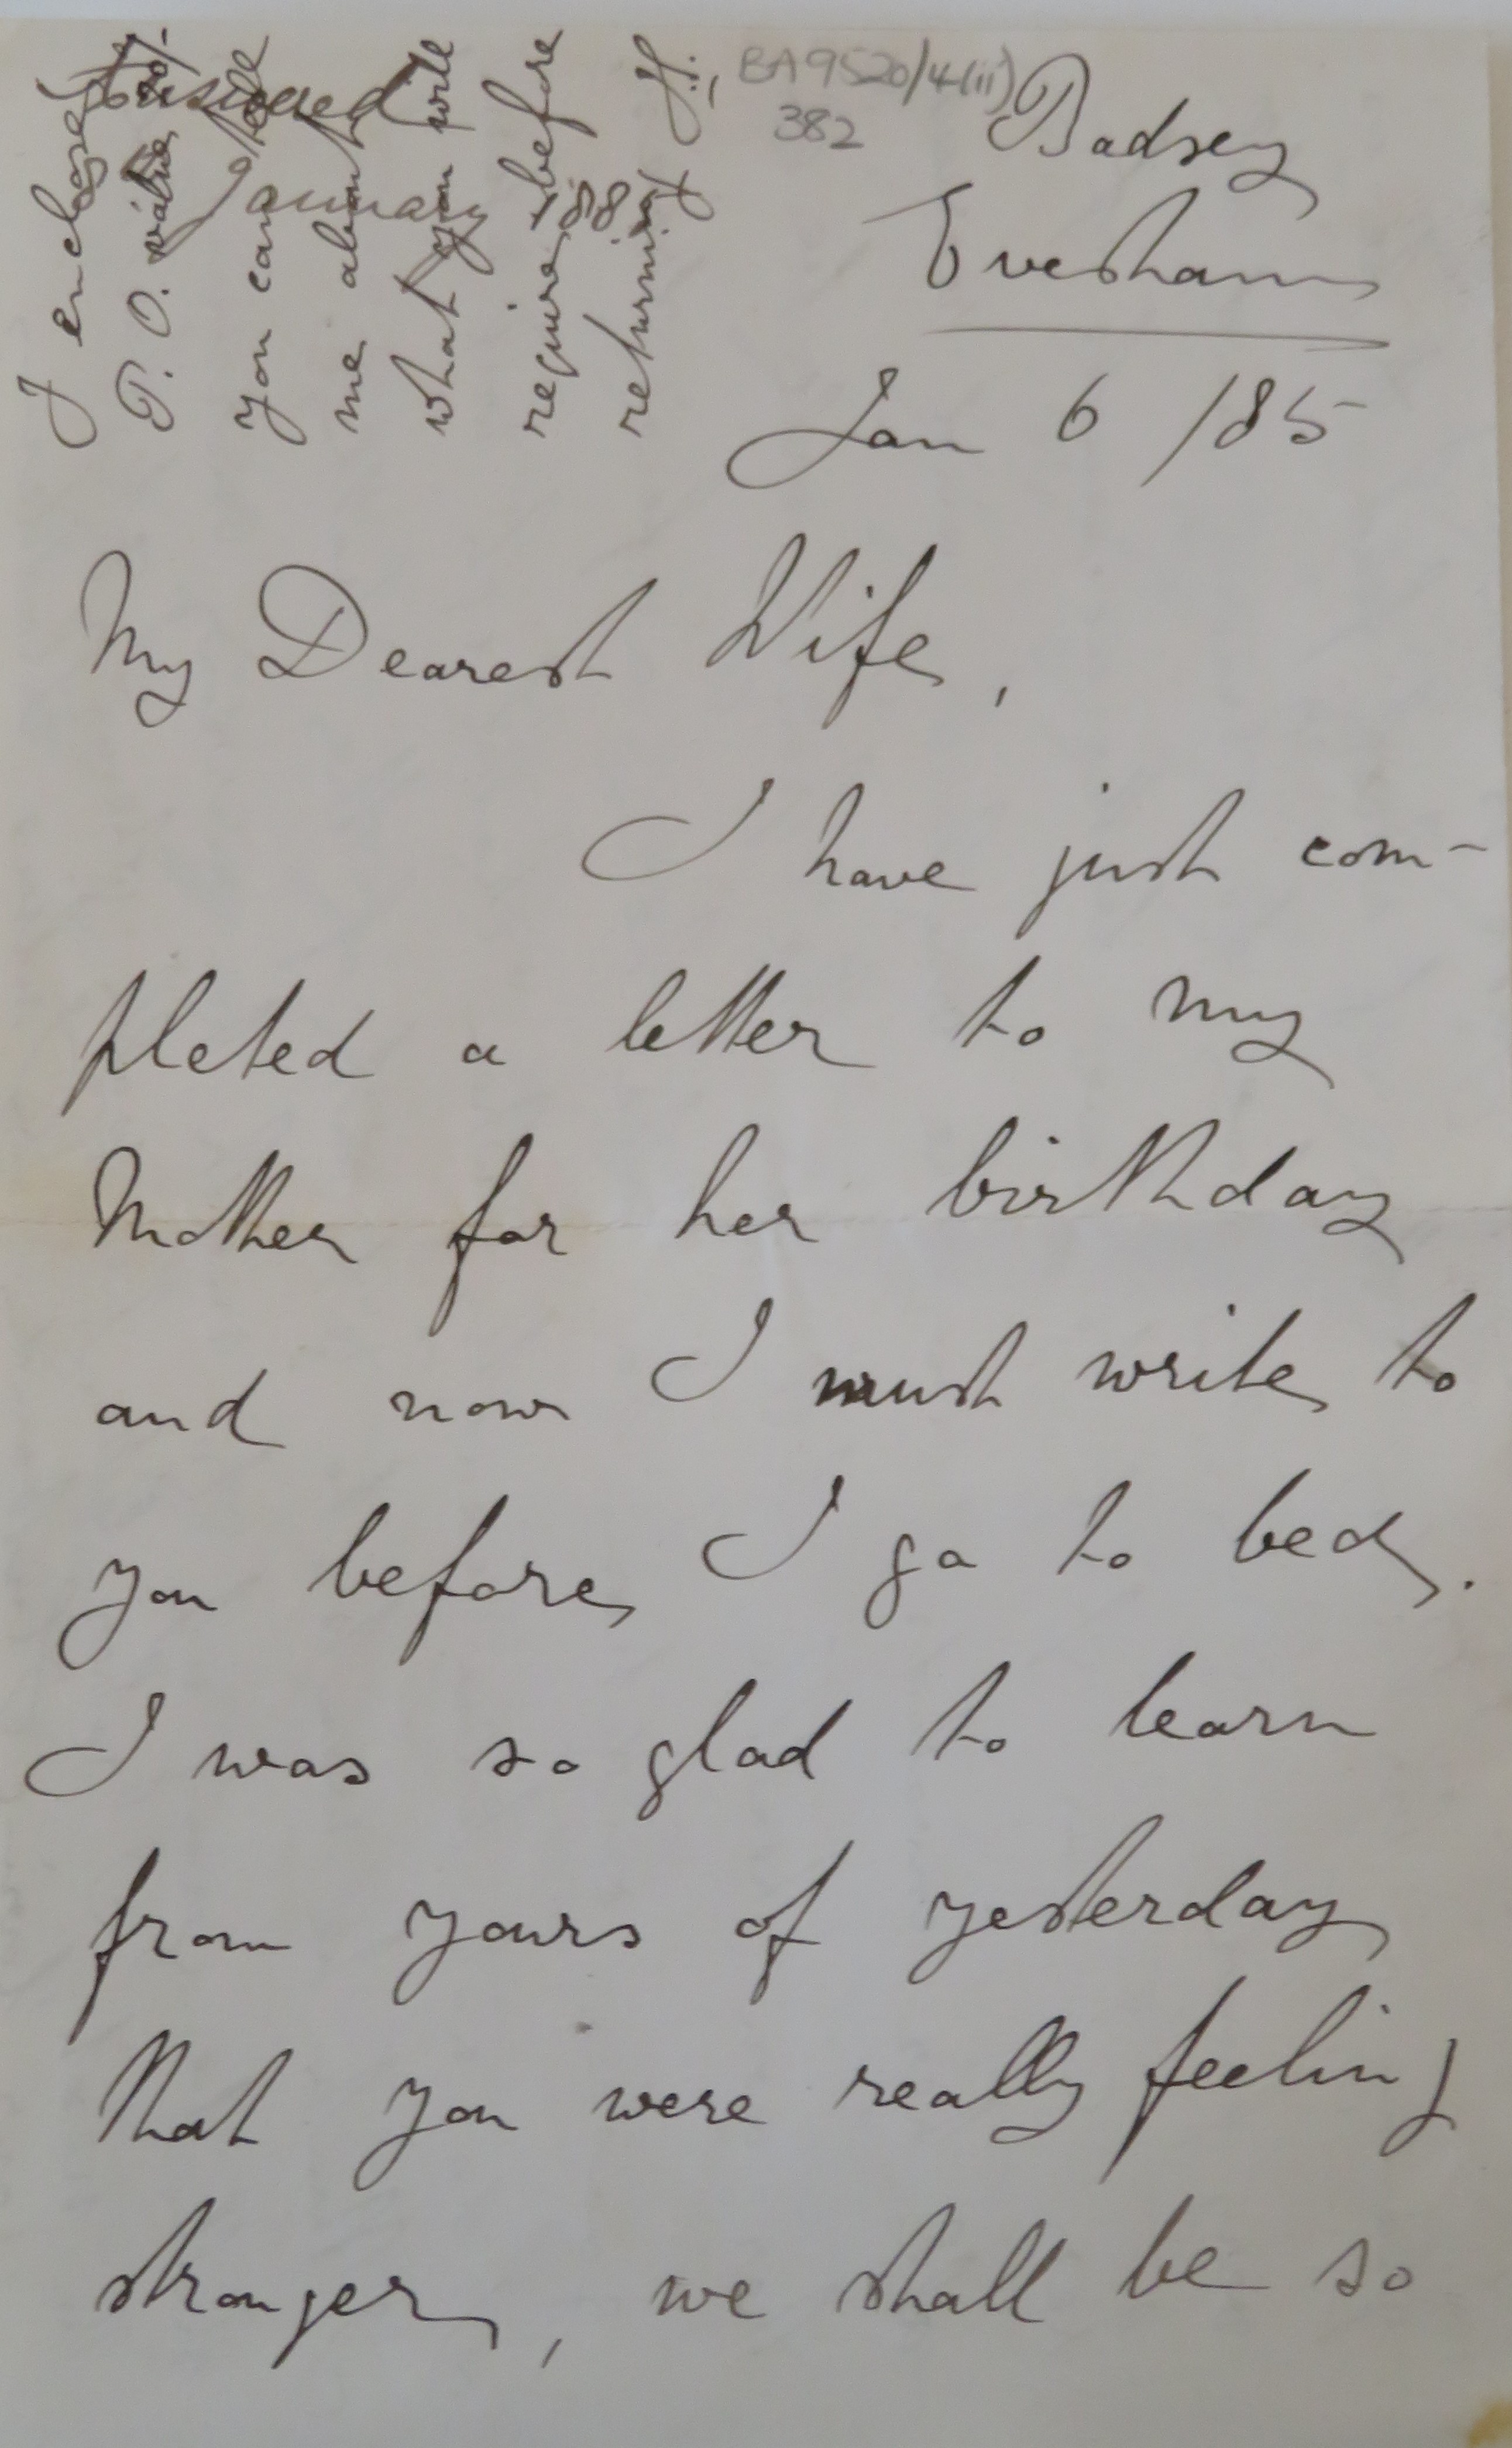 BA9520/4(ii)
382
Badsey
Evesham
Jan 6 /85
I enclose
P. O. value 20/-
you can tell
me about
what you will
require before
returning
Answered
January 188
My Dearest Wife,
I have just com-
pleted a letter to my
Mother for her birthday
and now I must write to
you before I go to bed.
I was so glad to learn
from yours of yesterday
that you were really feeling
stronger, we shall be so